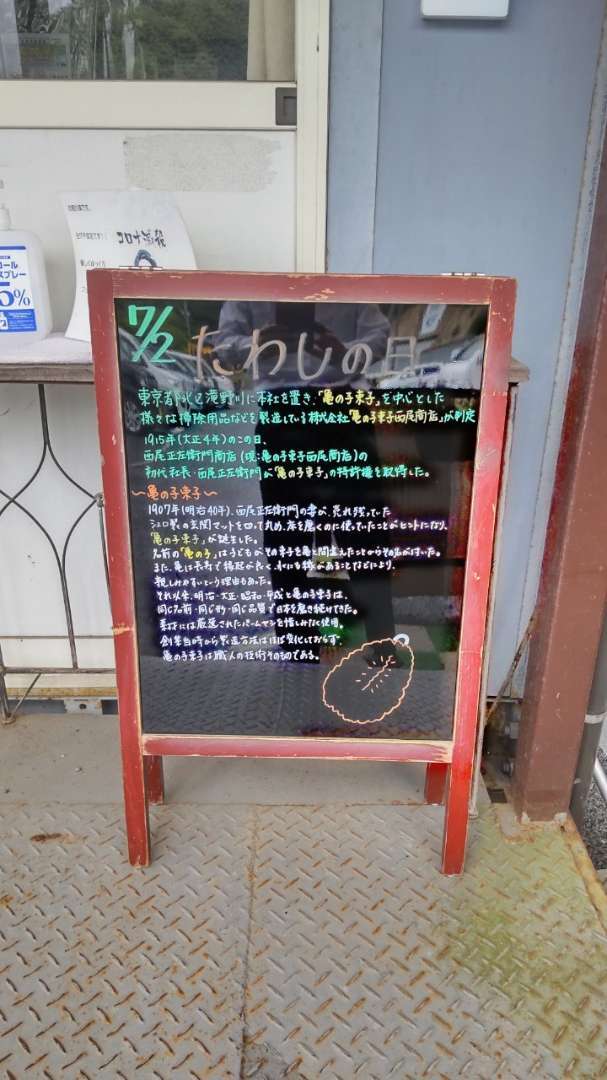 コロナ減殺
7/2
たわしの日
東京都北区滝野川に本社を置き、「亀の子束子」を中心とした
様々な掃除用品などを製造している株式会社「亀の子束子西尾商店」が制定
1915年(大正4年)のこの日、
西尾正左衛門商店(現:亀の子束子西尾商店)の
初代社長・西尾正左衛門が「亀の子束子」の特許権を取得した。
〜亀の子束子〜
1907年(明治40年)、西尾正左衛門の妻が、売れ残っていた
シュロ製の玄関マットを切って丸め、床を磨くのに使っていたことがヒントになり、
「亀の子束子」が誕生した。
名前の「亀の子」は子どもがその束子を亀と間違えたことからその名が付いた。
また、亀は長寿で縁起が良く、水にも縁があることなどにより、
親しみやすいという理由もあった。
それ以来、明治・大正・昭和・平成と亀の子束子は、
同じ名前・同じ形・同じ品質で日本を磨き続けてきた。
素材には厳選されたパームヤシを惜しみなく使用。
創業当時から製造方法はほぼ変化しておらず、
亀の子束子は職人の技術そのものである。